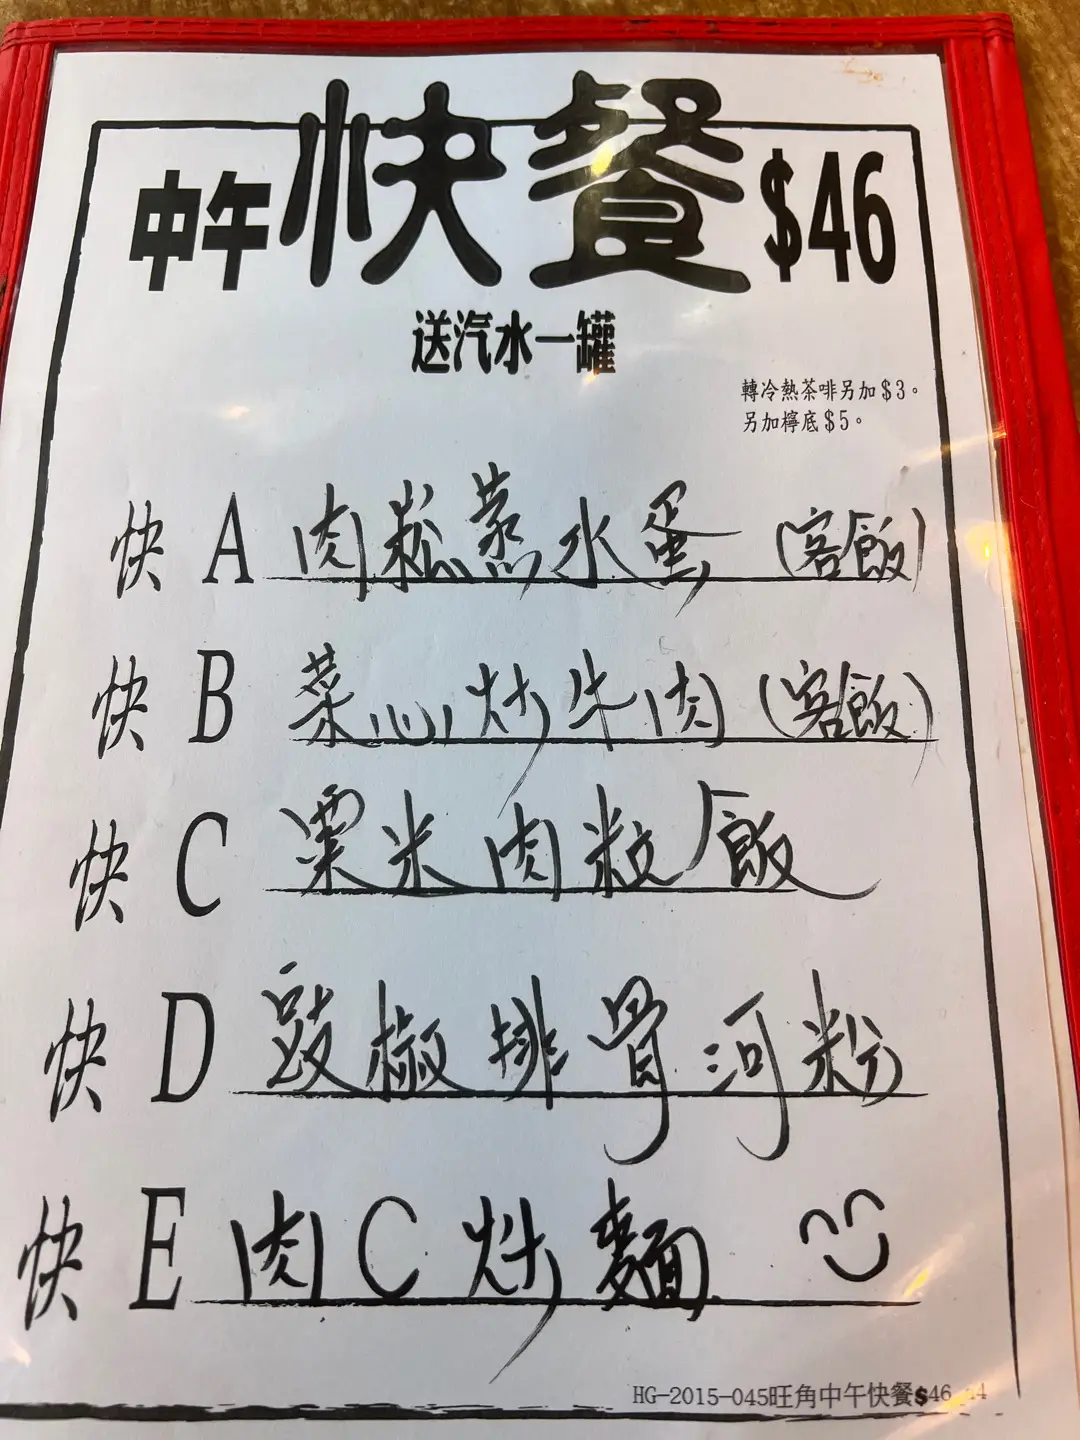 中午快餐$46
送汽水一罐
轉冷熱茶啡另加$3。
另加檸底$5。
快 A 肉崧蒸水蛋 (客飯)
快 B 菜心炒牛肉 (客飯)
快 C 粟米肉粒飯
快 D 豉椒排骨河粉
快 E 肉C炒麵
HG-2015-045旺角中午快餐$46